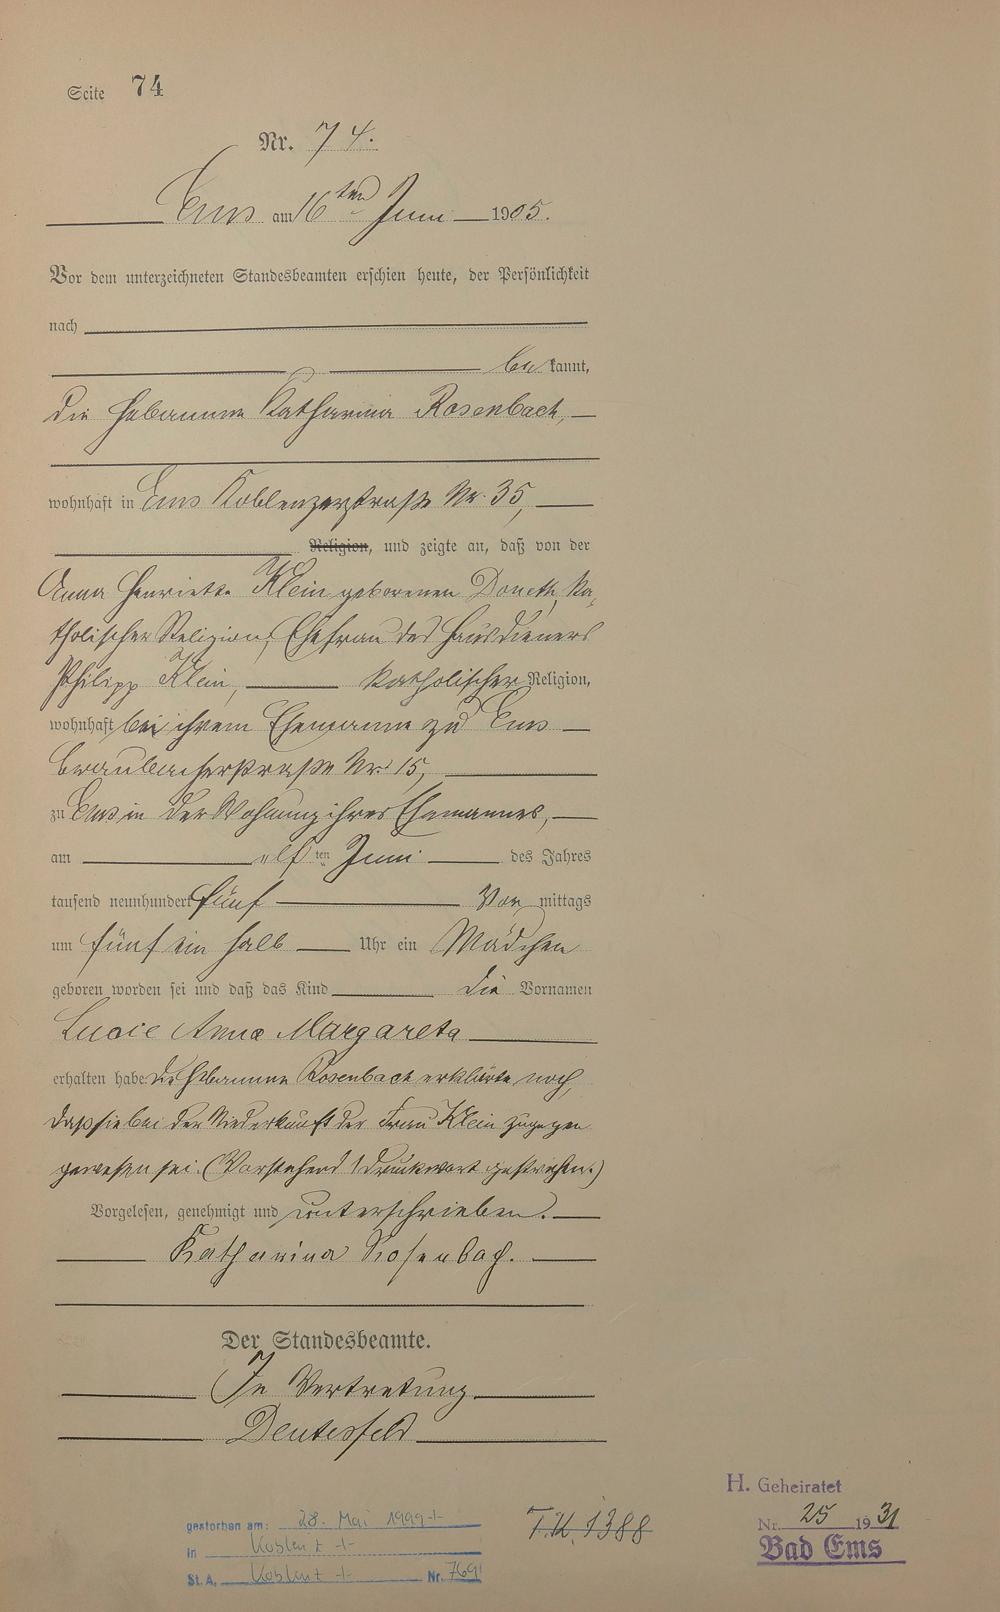 Seite 74
Nr. 74.
Ems am 16ten Juni 1905.
Vor dem unterzeichneten Standesbeamten erschien heute, der Persönlichkeit
nach
bekannt,
die Hebamme Katharina Rosenbach,
wohnhaft in Ems Koblenzerstraße Nr. 35,
Religion, und zeigte an, daß von der
Anna Henriette Klein geborenen Doneth, ka-
tholischer Religion, Ehefrau des Hausdieners
Philipp Klein, katholischer Religion,
wohnhaft bei ihrem Ehemanne zu Ems
Braubacherstraße Nr. 15,
zu Ems in der Wohnung ihres Ehemannes,
am elften Juni des Jahres
tausend neunhundert fünf Vormittags
um fünf ein halb Uhr ein Mädchen
geboren worden sei und daß das Kind die Vornamen
Lucie Anna Margareta
erhalten habe. Die Hebamme Rosenbach erklärte noch,
daß sie bei der Niederkunft der Frau Klein zugegen
gewesen sei. (Vorstehend 1 Druckwort gestrichen.)
Vorgelesen, genehmigt und unterschrieben.
Katharina Rosenbach.
Der Standesbeamte.
In Vertretung
Deutesfeld
H. Geheiratet
Nr. 25 1931
Bad Ems
gestorben am: 28. Mai 1999 -/-
in Koblenz -/-
St. A. Koblenz -/- Nr. 769
T.U. 1388